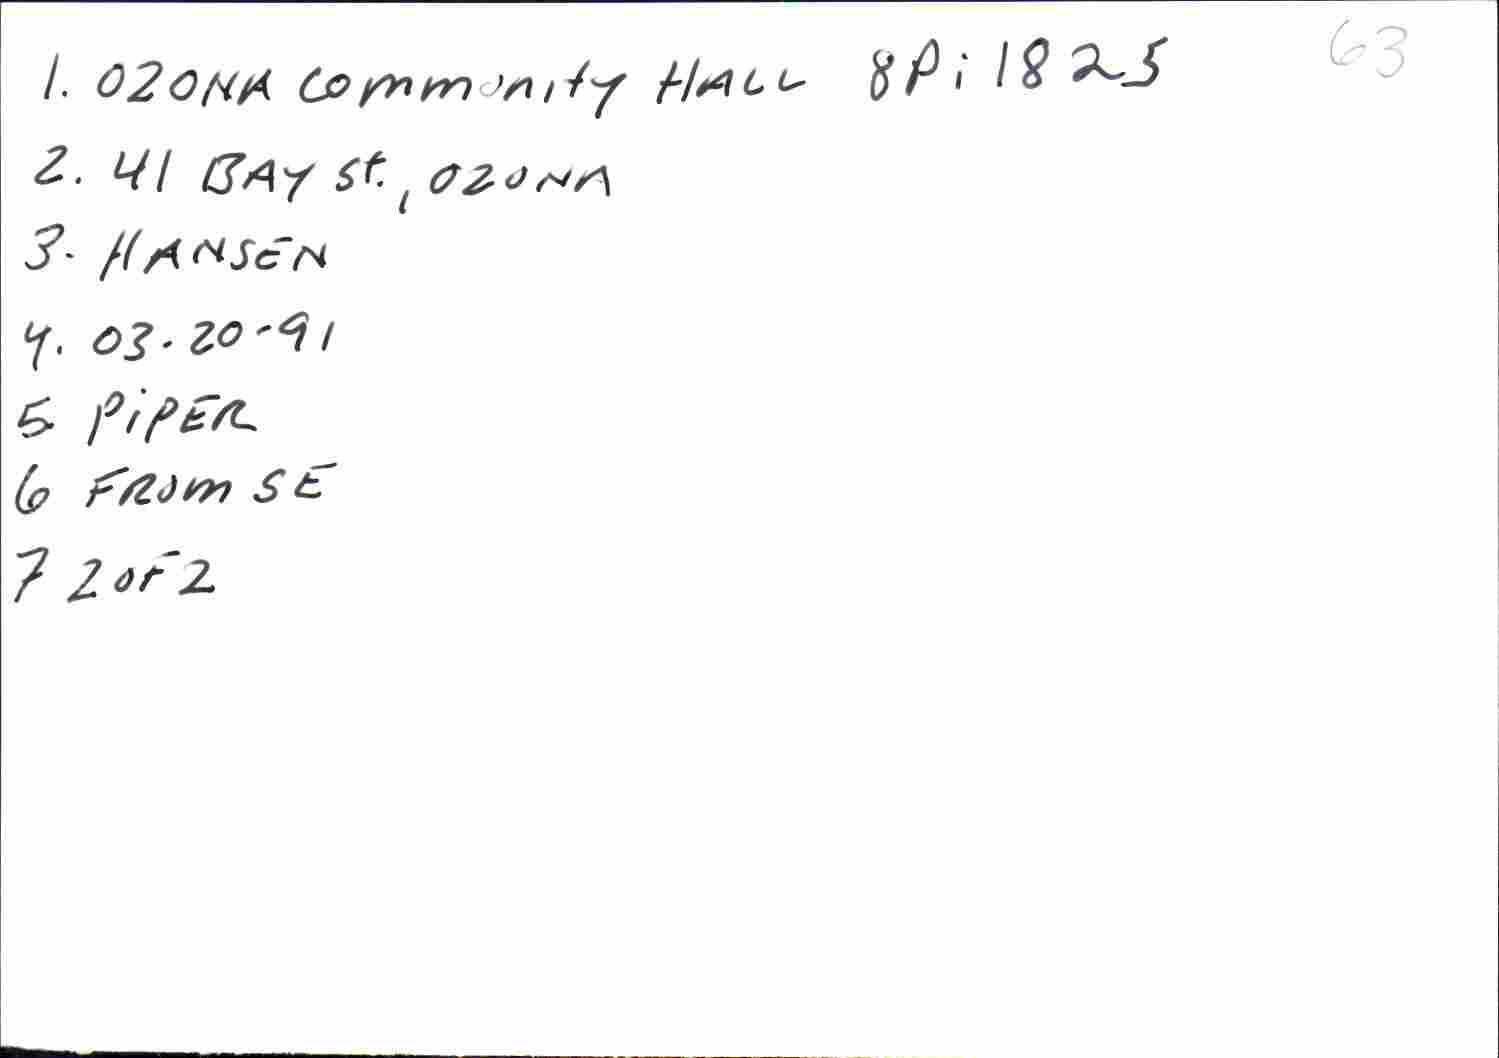 1. OZONA Community HALL 8Pi1825 63
2. 41 BAY St., OZONA
3. HANSEN
4. 03-20-91
5 PiPER
6 FROM SE
7 2 OF 2